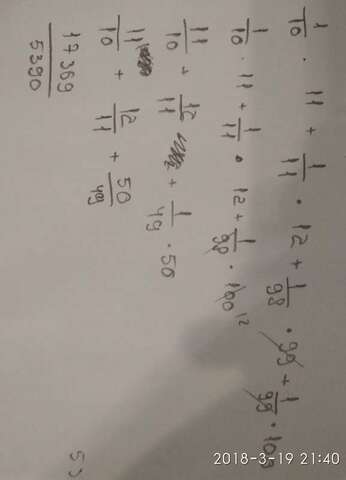 1/10 · 11 + 1/11 · 12 + 1/98 · 99 + 1/99 · 100
1/10 · 11 + 1/11 · 12 + 1/98 · 100
11/10 + 12/11 + 1/49 · 50
11/10 + 12/11 + 50/49
17369/5390
2018-3-19 21:40